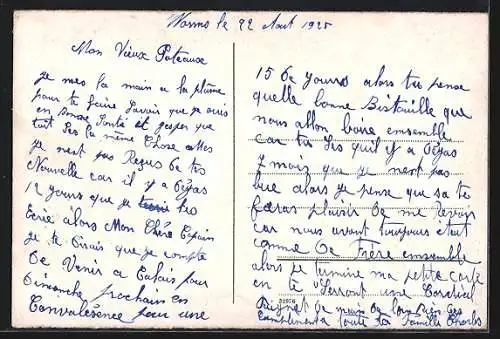 Worms le 22 Aout 1925
Mon Vieux Poteaux
je mes la main a la plume
pour te faire savoir que je suis
en bonne Santé et jesper que
toit Ses la même Chose Mes
je nest pas Reçus De tes
Nouvelle car il y a Déjas
12 jours que je tes
Ecrie alors Mon Chère Copain
je te Dirais que je compte
De Venir a Calais pour
Dimanche prochain en
Convalésence pour une
15 De jours alors tu pense
quelle bonne Bistouille que
nous allon boire ensemble
car tu Ses quil y a Déjas
7 mois que je nest pas
bue alors je pense que sa te
feras plaisir De me Revoir
car nous avont toujours était
comme De Frère ensemble
alors je termine ma petite carte
en te Serront une Cordial
Poignet de main de loin Bien des
Compliments a toute la Famille Charles